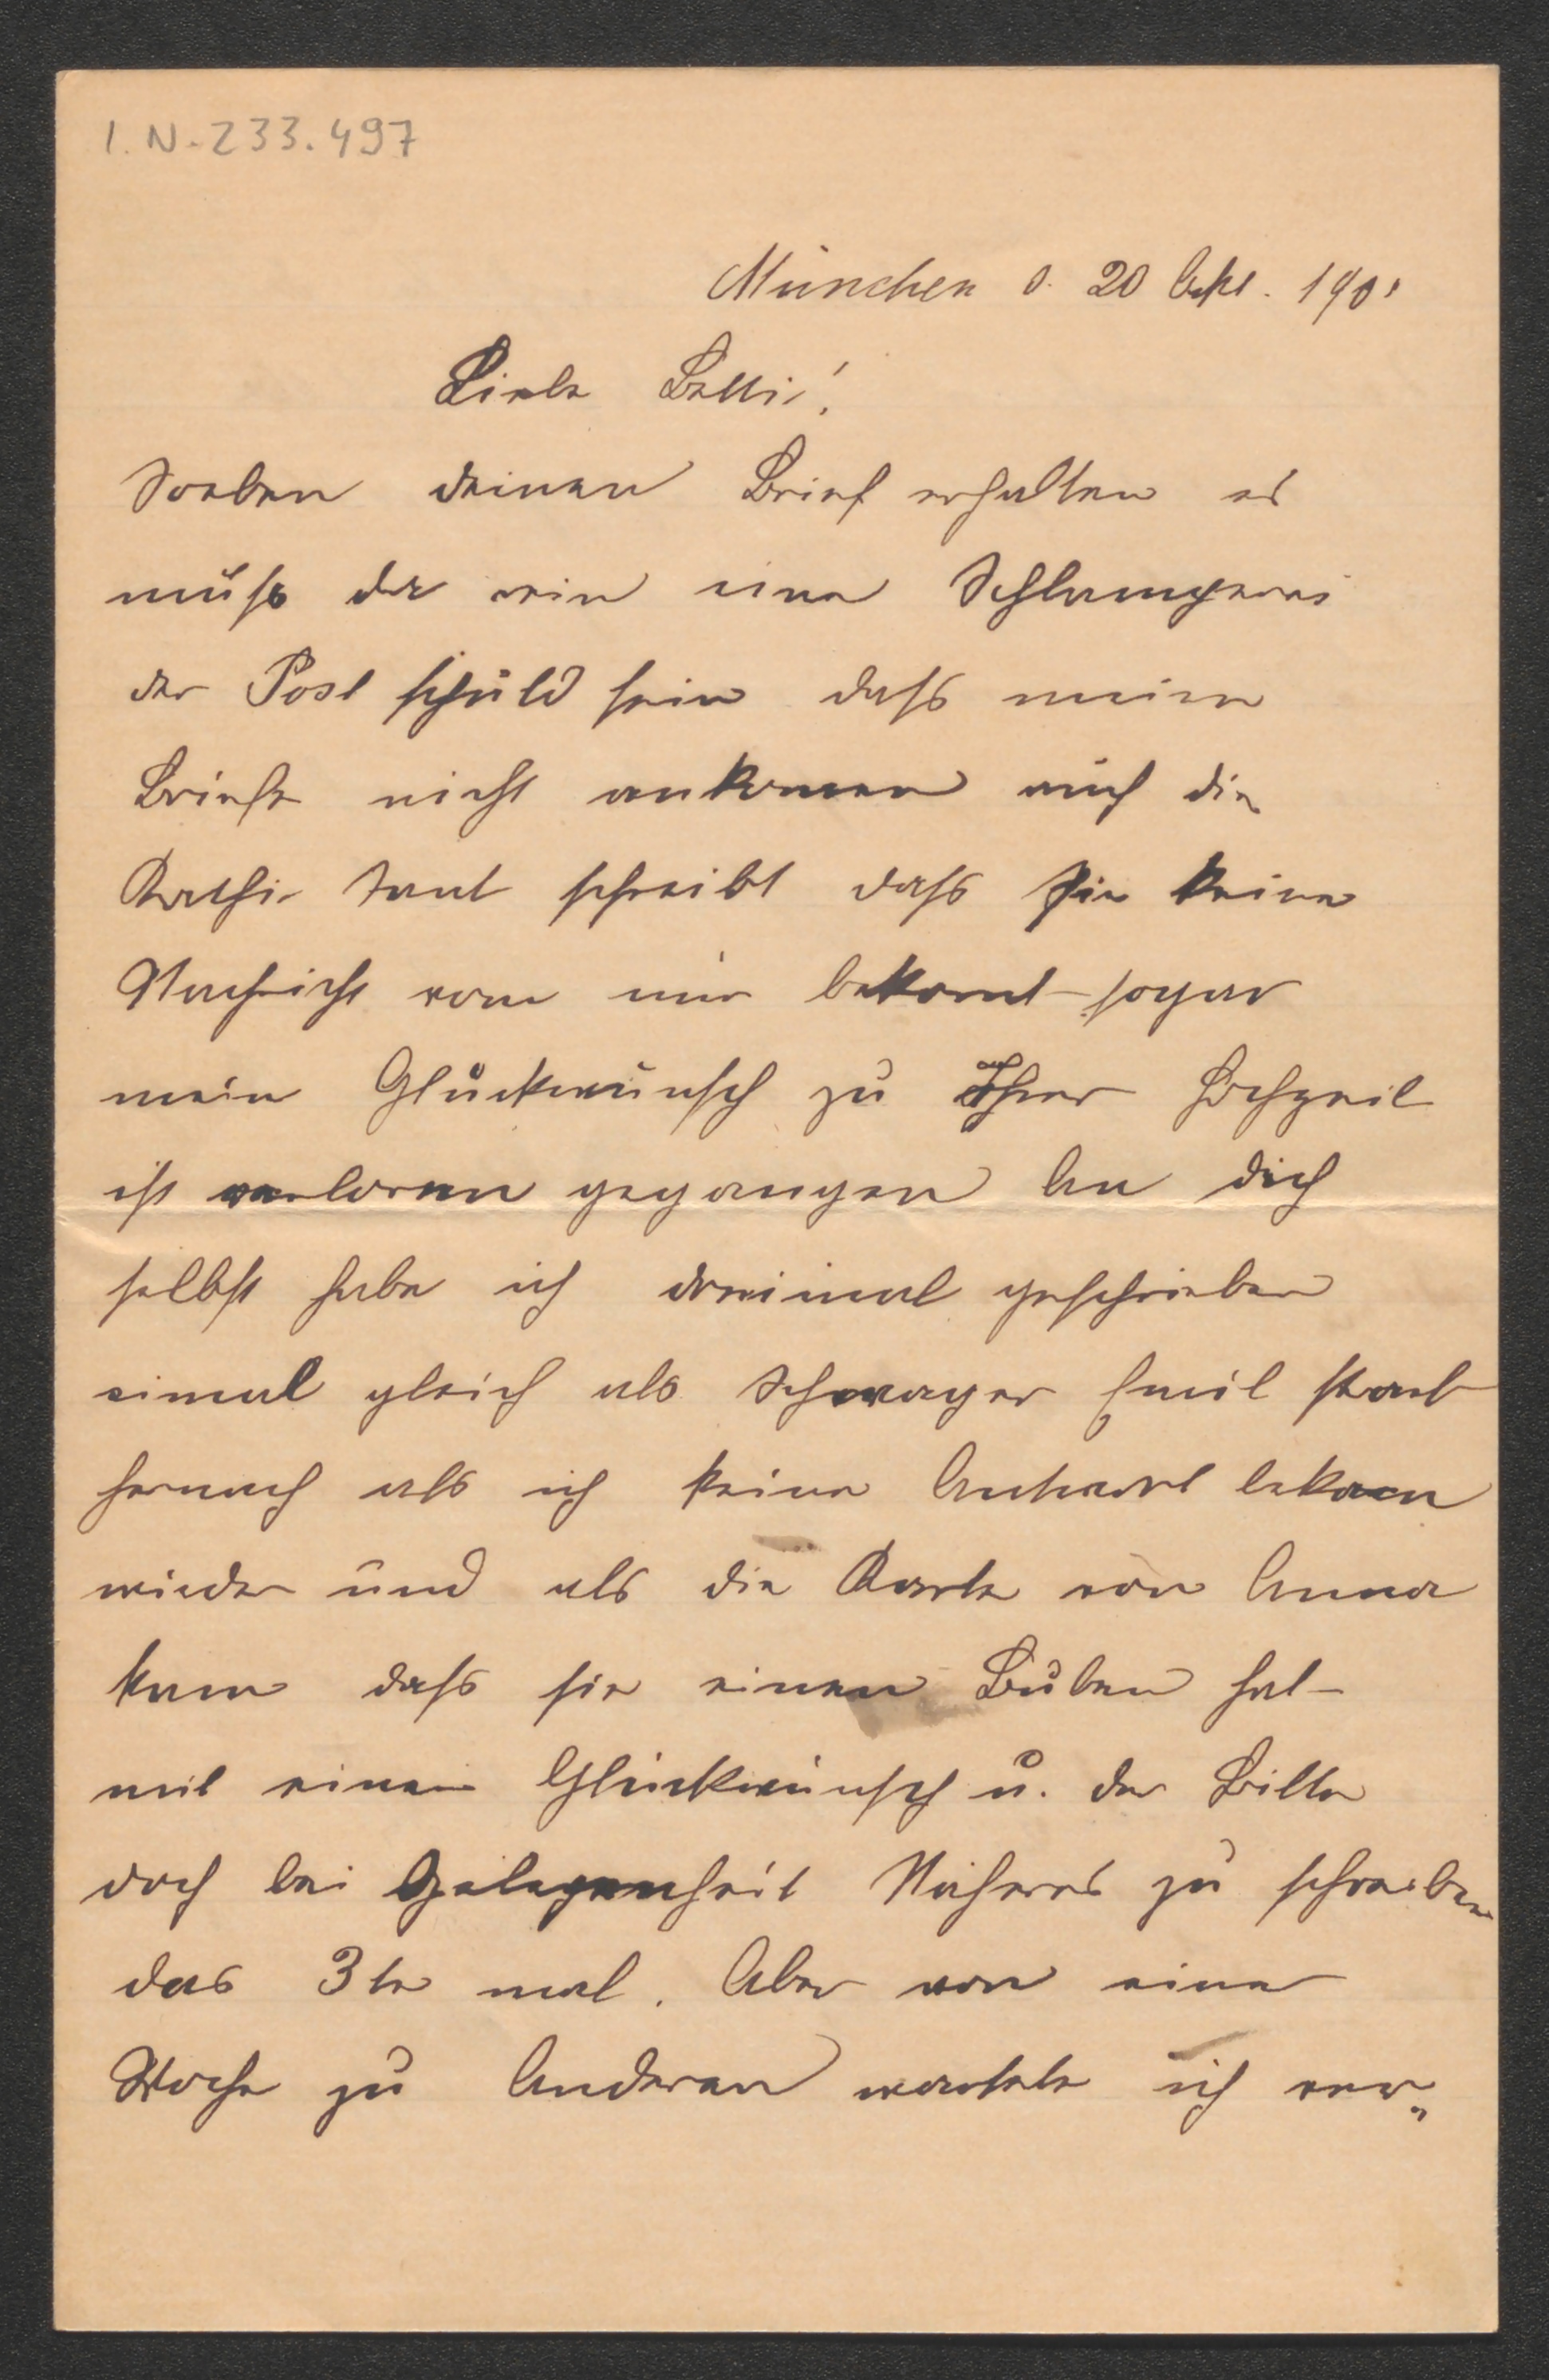 I.N. 233.497
München d. 20 Okt. 1901
Liebe Betti!
Soeben deinen Brief erhalten es
muß da rein eine Schlamperei
der Post schuld sein daß meine
Briefe nicht ankomen auch die
Kathi Tant schreibt daß sie keine
Nachricht von mir bekomt sogar
mein Glückwunsch zu Ihrer Hochzeit
ist verloren gegangen An dich
selbst habe ich dreimal geschrieben
eimal gleich als Schwager Emil starb
hernach als ich keine Antwort bekam
wieder und als die Karte von Anna
kam daß sie einen Buben hat
mit einem Glückwunsch u. der Bitte
doch bei Gelegenheit Näheres zu schreiben
das 3te mal. Aber von eine
Woche zu Anderen wartete ich ver„